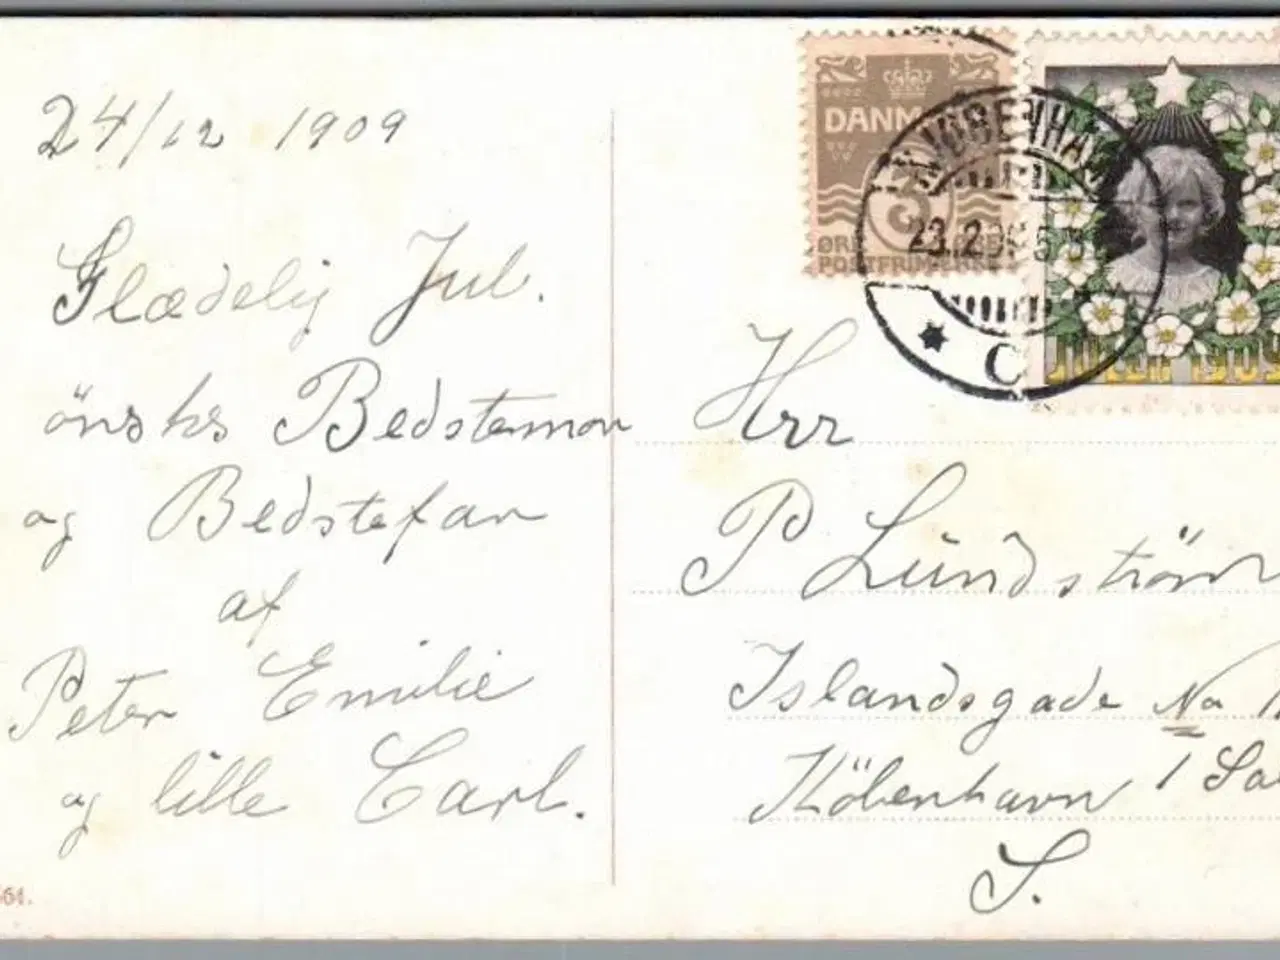 24/12 1909
Glædelig Jul.
önskes Bedstemor
og Bedstefar
af
Peter Emilie
og lille Carl.
561.
DANMARK
3
ØRE
POSTFRIMÆRKE
KJØBENHAVN
23.2
C
JULEN 1909
Hrr
P Lundström
Islandsgade No
Köbenhavn 1 Sal
S.